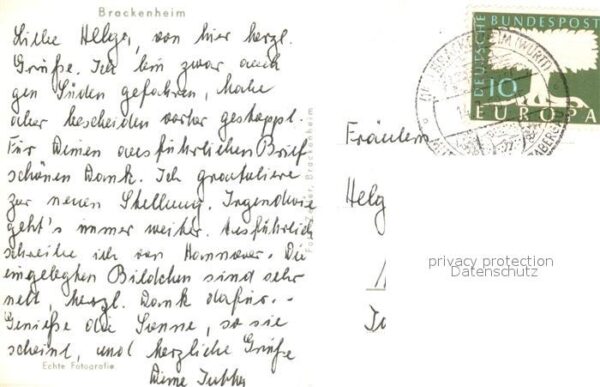 Brackenheim
Liebe Helga, von hier herzl.
Grüße. Ich bin zwar auch
gen Süden gefahren, habe
aber bescheiden vorher gestoppt.
Für Deinen ausführlichen Brief
schönen Dank. Ich gratuliere
zur neuen Stellung. Irgendwie
geht's immer weiter. Ausführlich
schreibe ich von Hannover. Die
eingelegten Bildchen sind sehr
nett, herzl. Dank dafür. -
Genieße die Sonne, so sie
scheint, und herzliche Grüße
Deine
Echte Fotografie
Brackenheim
DEUTSCHE BUNDESPOST
10
EUROPA
BRACKENHEIM (WÜRTT)
Fräulein
Helg
privacy protection
Datenschutz